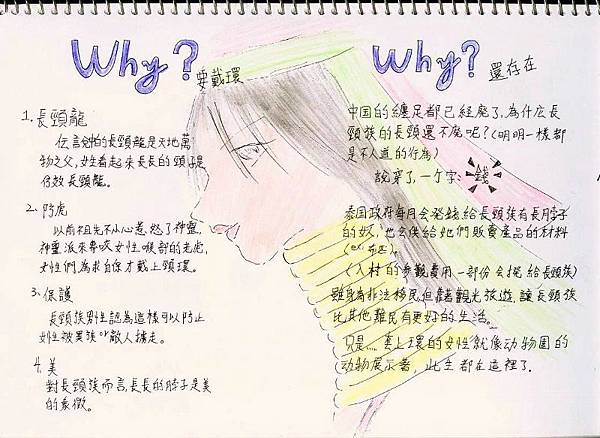 Why? 要戴環
1. 長頸龍
傳言始的長頸龍是天地萬
物之父,女性看起來長長的頸子是
仿效長頸龍。
2. 防虎
以前祖先不小心惹怒了神靈,
神靈派來專咬女性喉部的老虎,
女性們為求自保才戴上頸環。
3. 保護
長頸族男性認為這樣可以防止
女性被異族or敵人擄走。
4. 美
對長頸族而言,長長的脖子是美
的象徵。
Why? 還存在
中国的纏足都已經廢了,為什広長
頸族的長頸還不廢呢?(明明一樣都
是不人道的行為)
說穿了,一个字:錢
泰国政府每月会発錢給長頸族有長脖子
的女,也会供給她們販賣產品的材料
(ex:布匹)。
(入村的參觀費用一部份会撥給長頸族)
雖身為非法移民,但靠著觀光旅遊,讓長頸族
比其他難民有更好的生活。
只是……套上環的女性就像动物園的
动物展示著,此生都在這裡了.